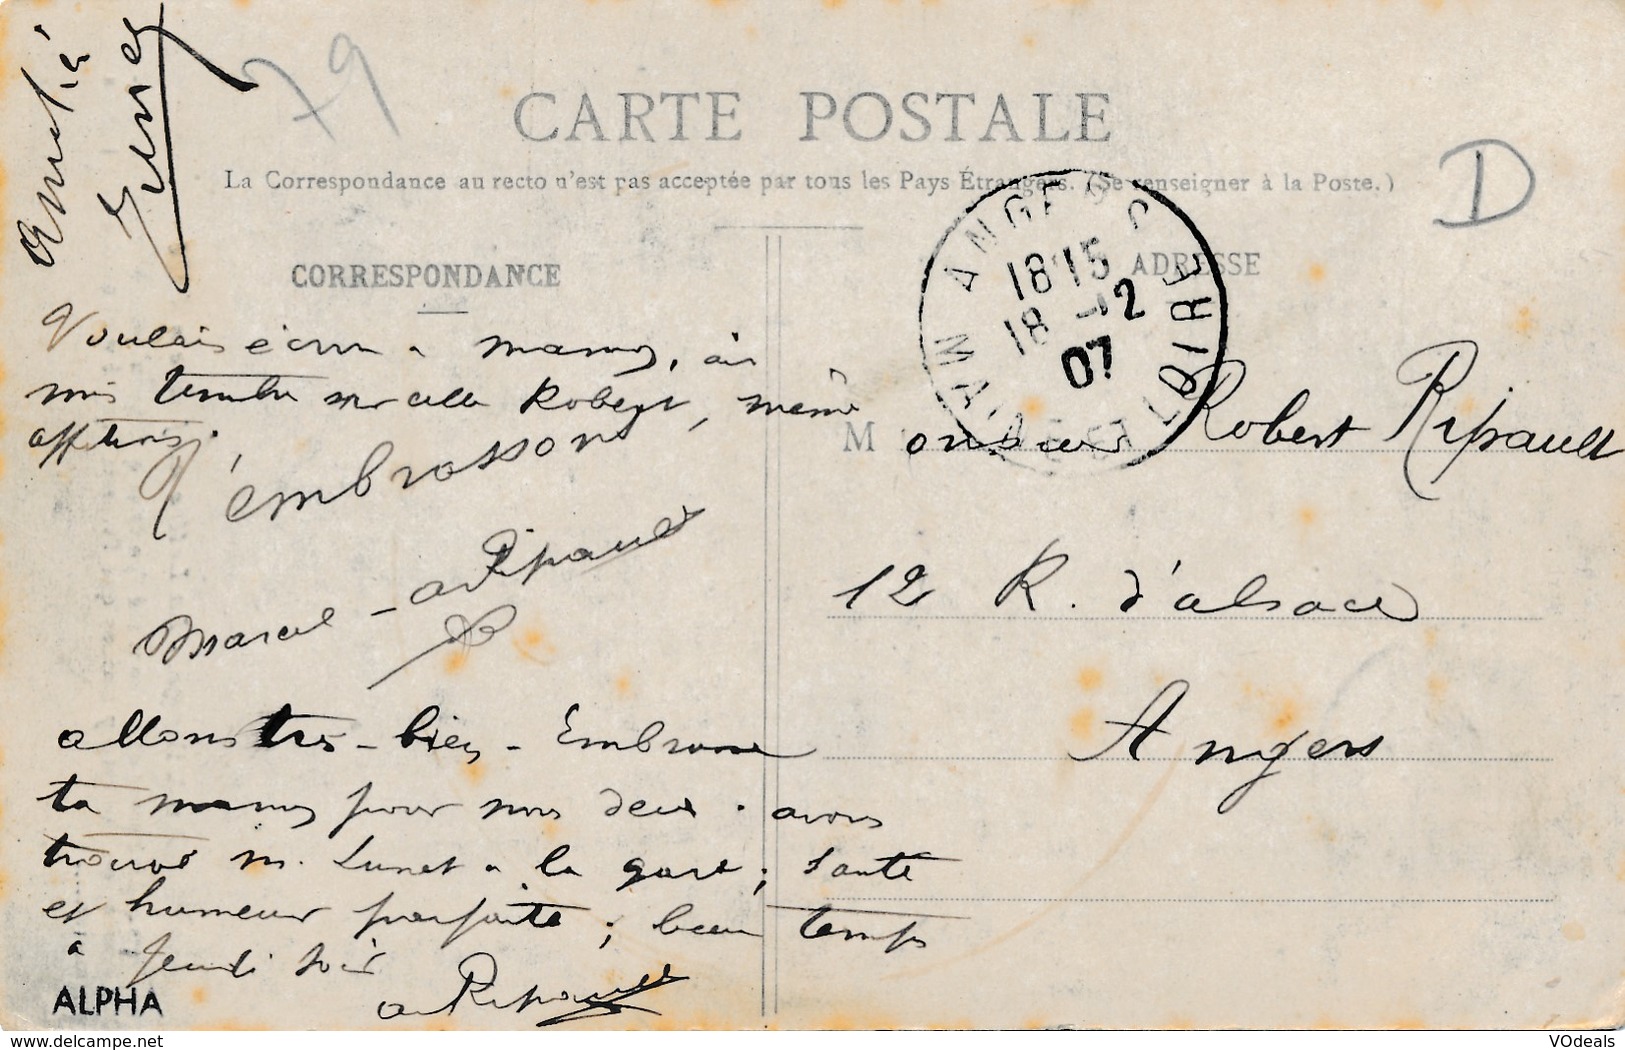 Amitié
79
CARTE POSTALE
D
La Correspondance au recto n'est pas acceptée par tous les Pays Étrangers. (Se renseigner à la Poste.)
CORRESPONDANCE
ADRESSE
ANGERS
18 15
18 -12
07
MAINE ET LOIRE
Voulais écrire à maman, ai
mis timbre sur celle Robert, même
affection.
T'embrassons
Marcel - A Ripault
Monsieur Robert Ripault
12 R. d'Alsace
Angers
allons très-bien - Embrasse
ta maman pour nous deux. avons
trouvé M. Lunet à la gare; santé
et humeur parfaite; beau temps
à Jeudi soir
A Ripault
ALPHA
https://www.delcampe.net
VOdeals